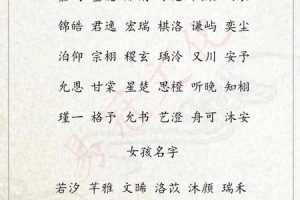 锦皓 君逸 宏瑞 棋洛 谦屿 奕尘
泊仰 宗栩 稷玄 瑀泠 又川 安予
允恩 甘棠 星楚 思橙 听晚 知栩
瑾一 格予 允书 艺澄 舟可 沐安
女孩名字
若汐 芊雅 文晞 洛苡 沐颜 瑞禾